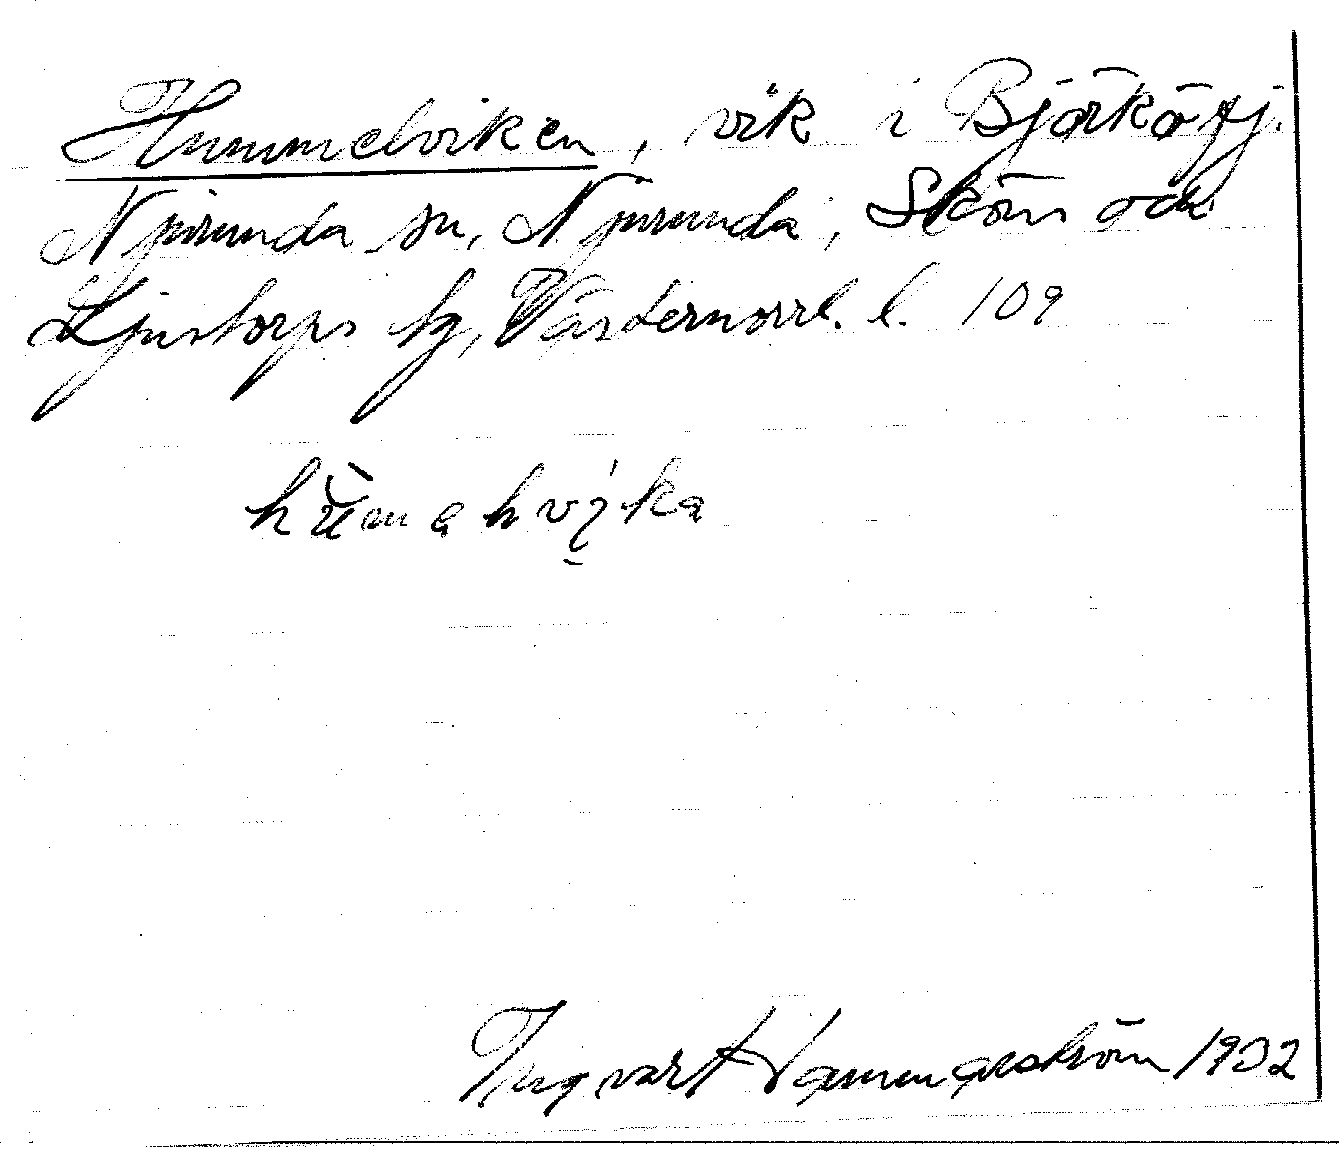 Hummelviken, vik i Björköfj.
Njurunda sn, Njurunda, Sköns och
Ljustorps tg, Västernorrl. l. 109
Ingvar Hammarström 1932